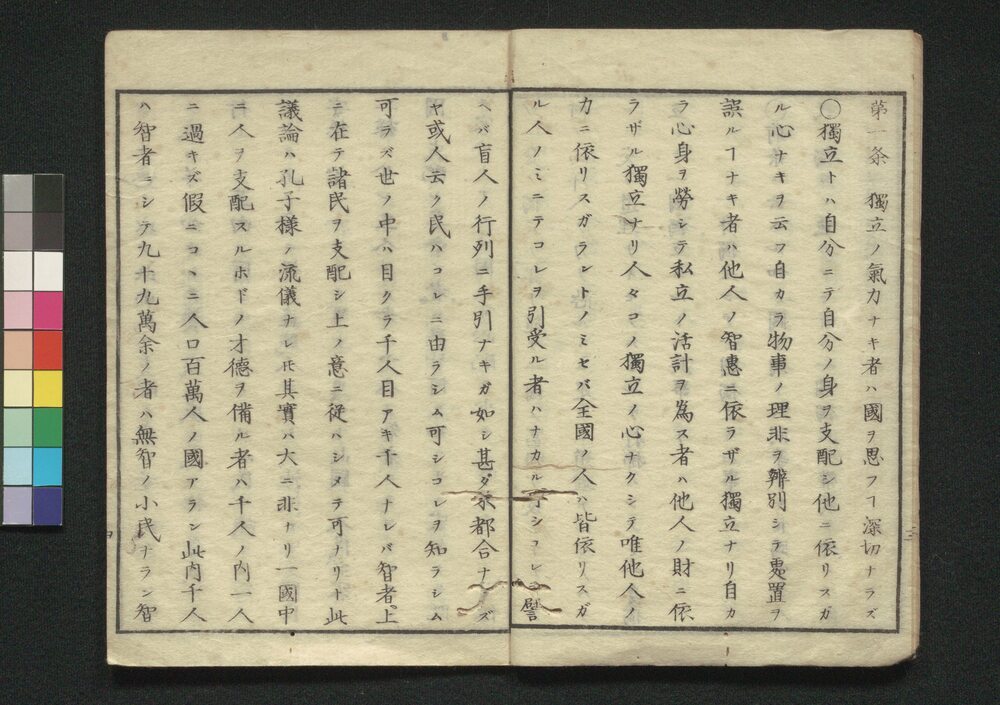 第一条　獨立ノ氣力ナキ者ハ國ヲ思フヿ深切ナラズ
〇獨立トハ自分ニテ自分ノ身ヲ支配シ他ニ依リスガ
ル心ナキヲ云フ自カラ物事ノ理非ヲ辨別シテ處置ヲ
誤ルヿナキ者ハ他人ノ智惠ニ依ラザル獨立ナリ自カ
ラ心身ヲ勞シテ私立ノ活計ヲ為ス者ハ他人ノ財ニ依
ラザル獨立ナリ人々コノ獨立ノ心ナクシテ唯他人ノ
力ニ依リスガラントノミセバ全國ノ人ハ皆依リスガ
ル人ノミニテコレヲ引受ル者ハナカル可シコレヲ譬
ヘバ盲人ノ行列ニ手引ナキガ如シ甚ダ不都合ナラズ
ヤ或人云ク民ハコレニ由ラシム可シコレヲ知ラシム
可ラズ世ノ中ハ目クラ千人目アキ千人ナレバ智者上
ニ在テ諸民ヲ支配シ上ノ意ニ從ハシメテ可ナリト此
議論ハ孔子樣ノ流儀ナレ𪜈其實ハ大ニ非ナリ一國中
ニ人ヲ支配スルホドノ才德ヲ備ル者ハ千人ノ內一人
ニ過キズ假ニコヽニ人口百萬人ノ國アラン此內千人
ハ智者ニシテ九十九萬余ノ者ハ無智ノ小民ナラン智